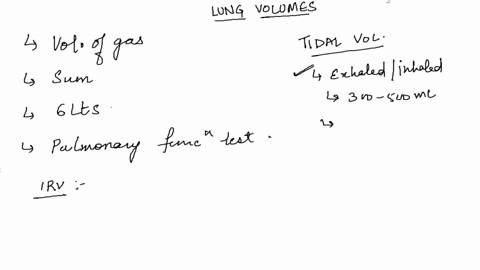 LUNG VOLUMES
↳ Vol. of gas
↳ Sum
↳ 6 Lts
↳ Pulmonary funcⁿ test.
IRV :-
TIDAL VOL.
✓ ↳ Exhaled / inhaled
↳ 300-500 ml
↳